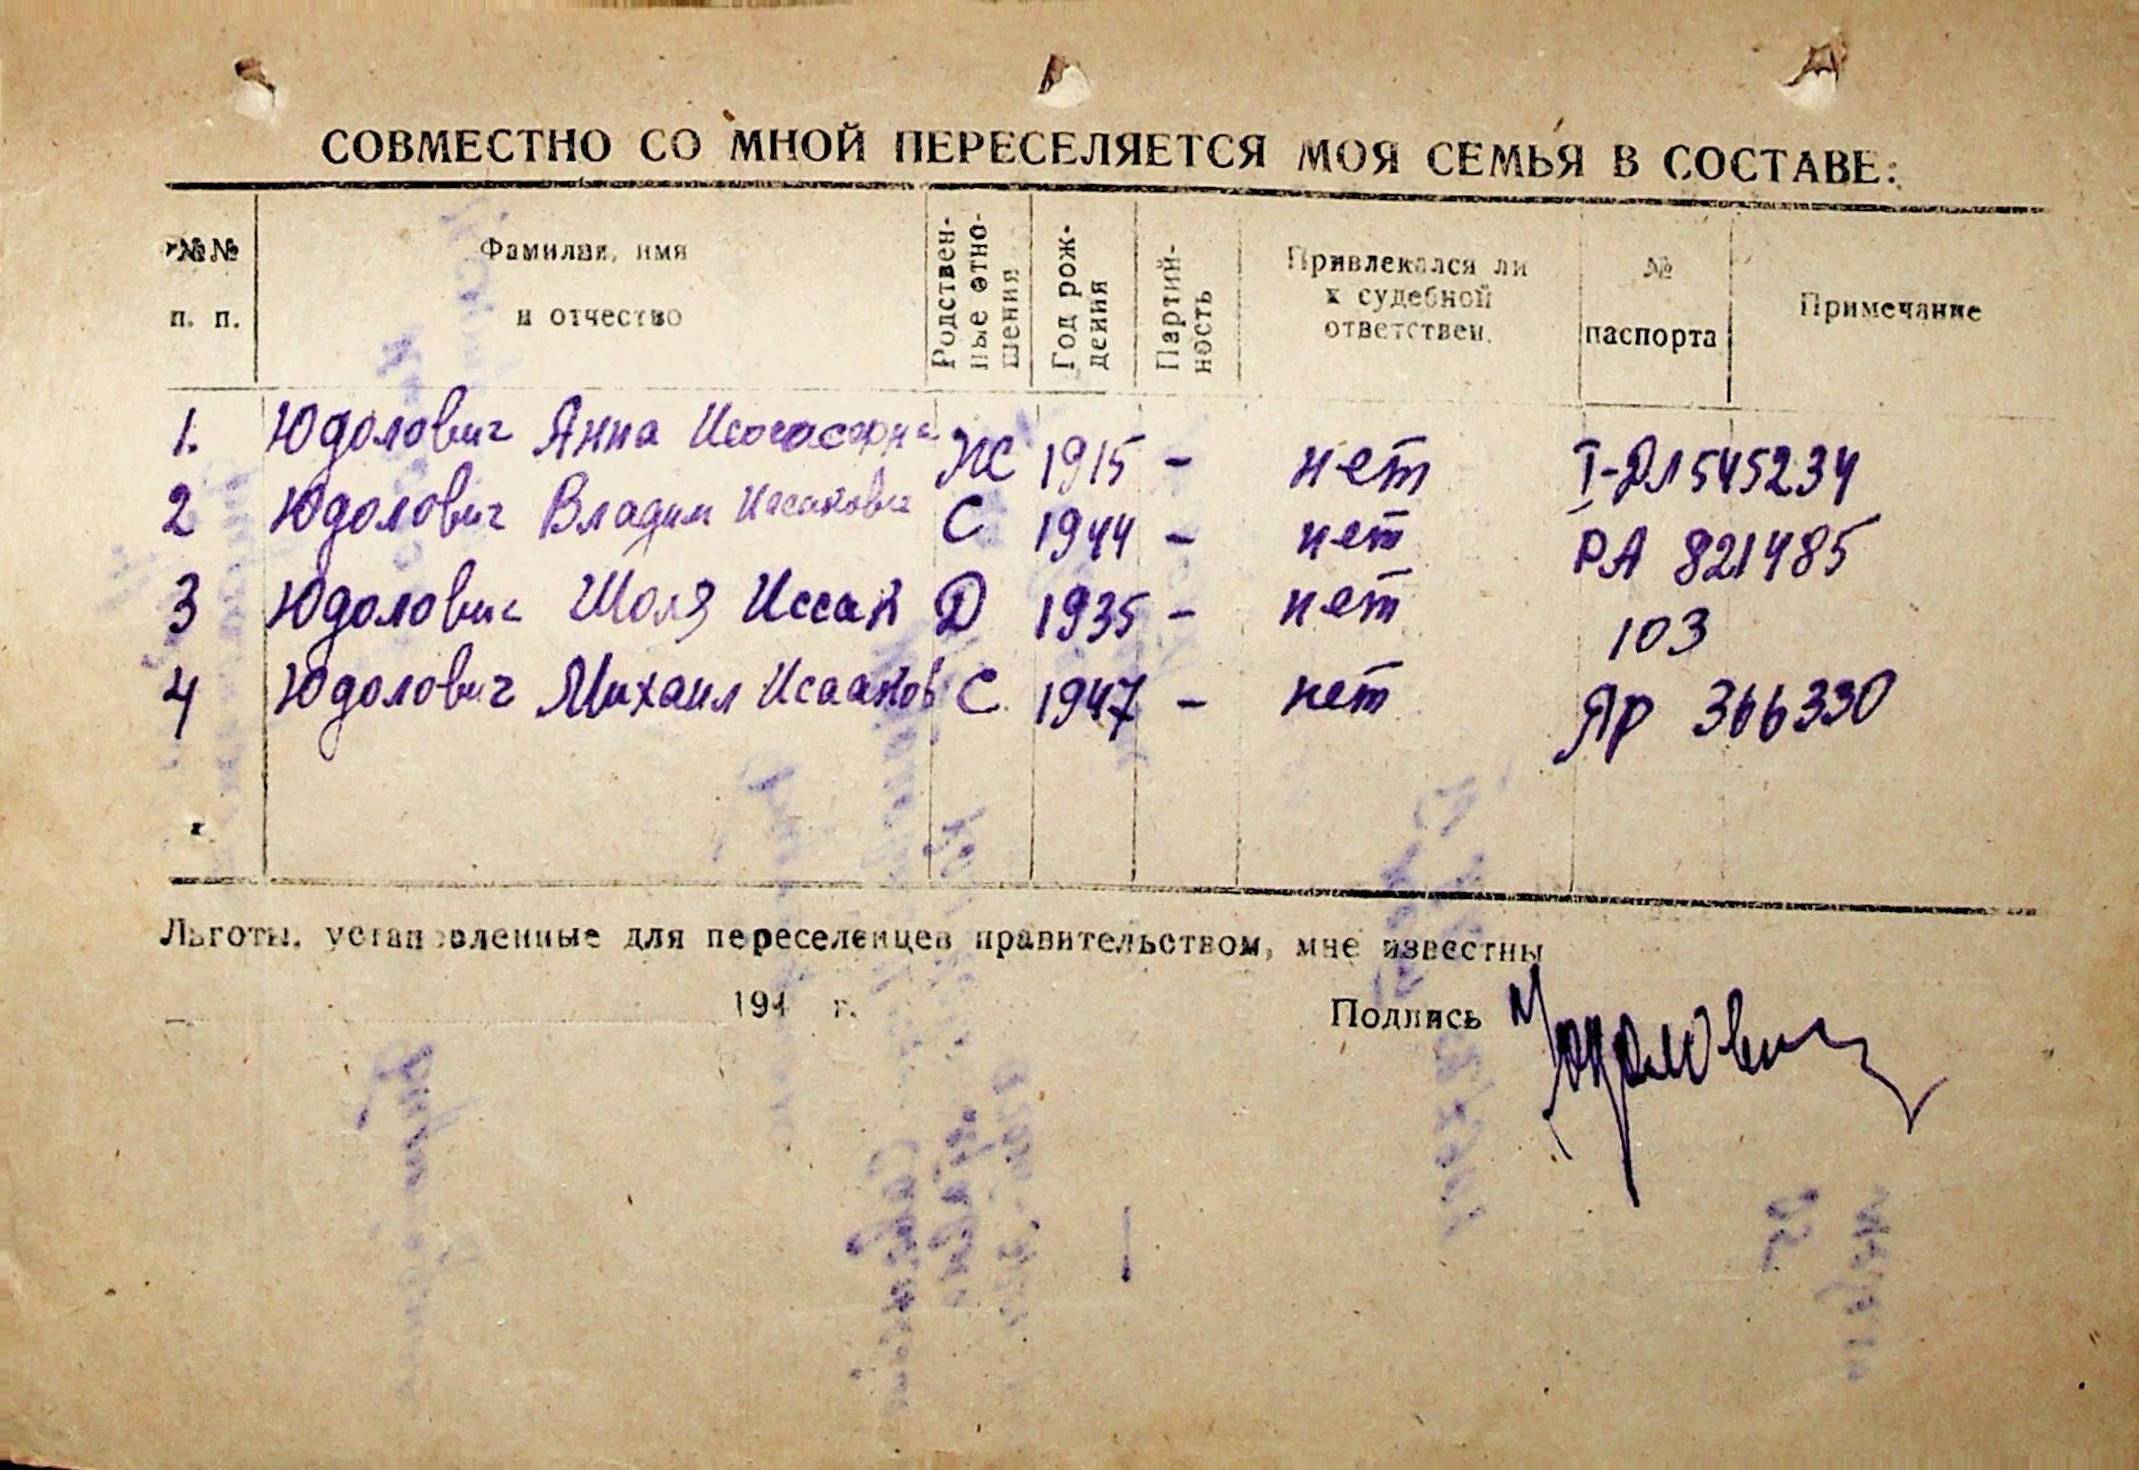 СОВМЕСТНО СО МНОЙ ПЕРЕСЕЛЯЕТСЯ МОЯ СЕМЬЯ В СОСТАВЕ:
№№ п. п. Фамилия, имя и отчество Родственные отношения Год рождения Партийность Привлекался ли к судебной ответствен. № паспорта Примечание
1. Юдолович Анна Ж 1915 - нет I-ДЛ 545234
2 Юдолович Владим Иссакович С 1944 - нет РА 821485
3 Юдолович Шоля Иссак Д 1935 - нет 103
4 Юдолович Михаил Исааков С 1947 - нет ЯР 366330
Льготы, установленные для переселенцев правительством, мне известны
194 г. Подпись Юдолович